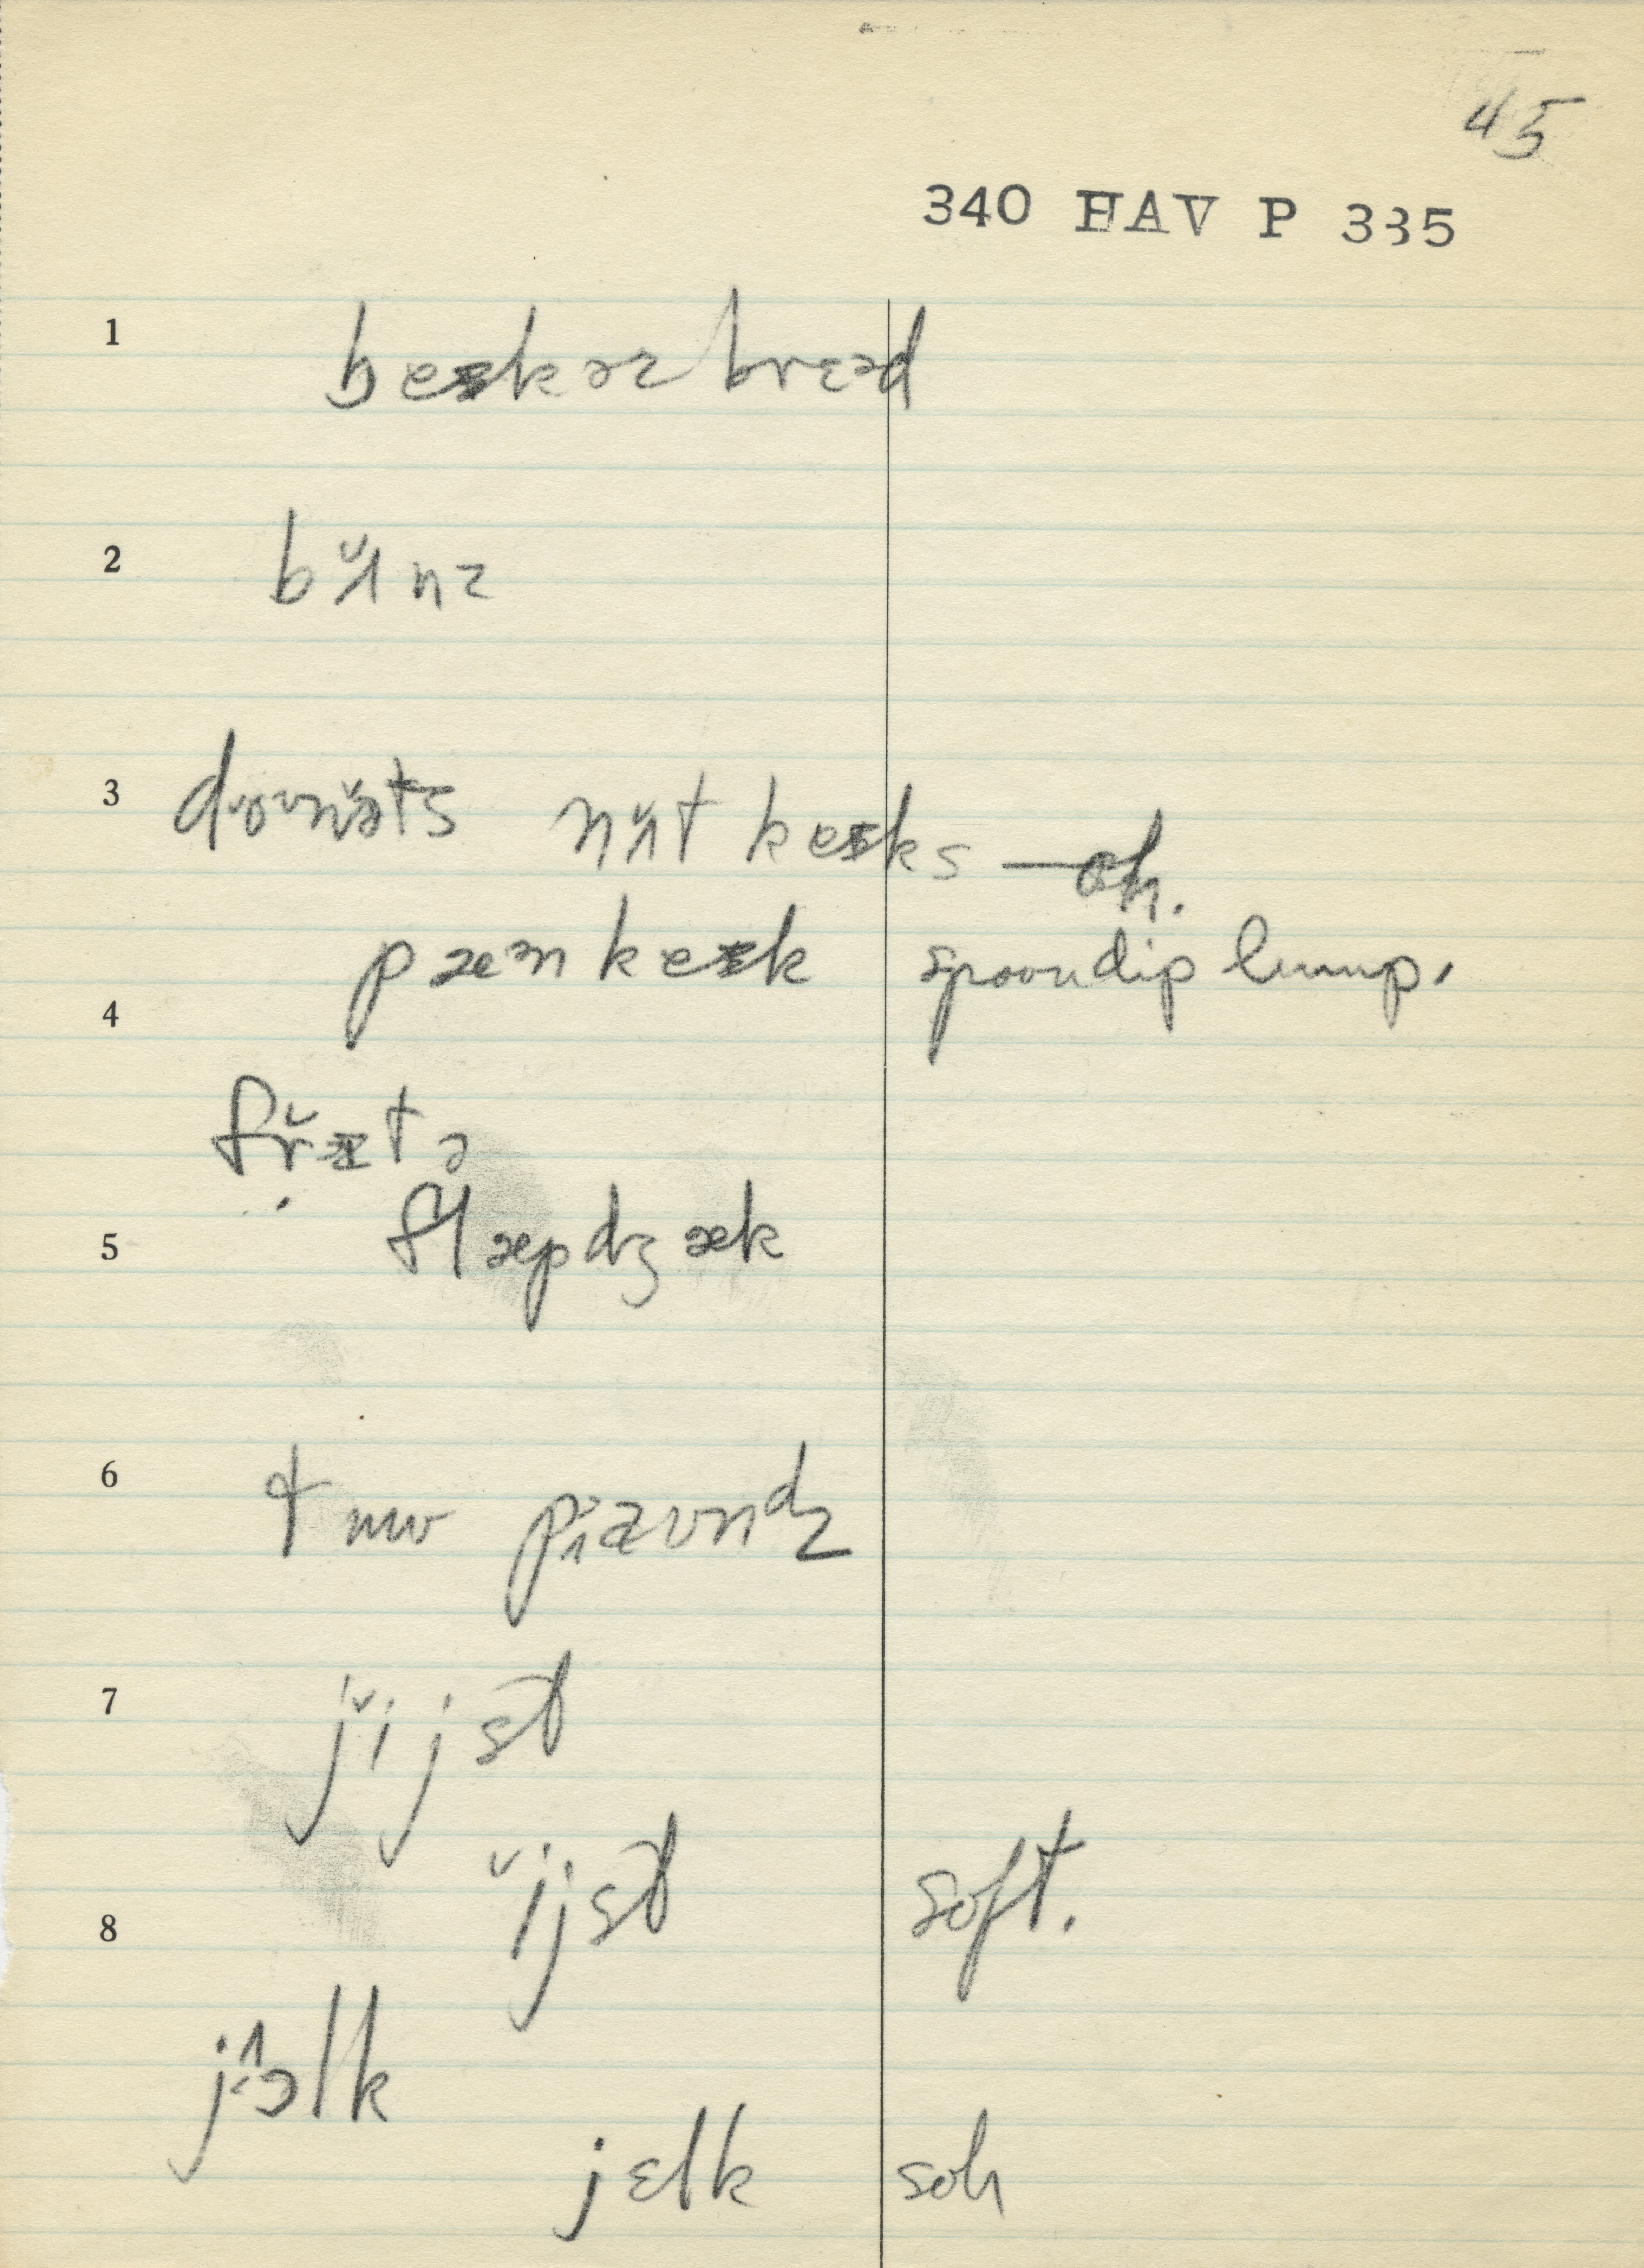 45
340 HAV P 335
1 beɪkərz brɛəd
2 bʌ̆nz
3 doʊnə̆ts nʌ̆t keɪks — oh.
pæn keɪk spoondip lump.
4
fr̆ɪtə
5 flæpdʒæk
6 tuw pɑ̆ʊndz
7 jĭjst
ĭjst soft.
8
jɔlk
jɛlk soh